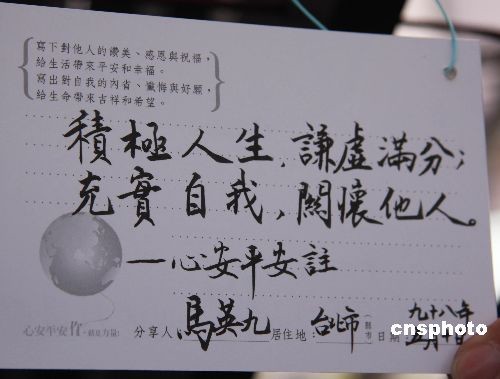 寫下對他人的讚美、感恩與祝福，
給生活帶來平安和幸福。
寫出對自我的內省、懺悔與好願，
給生命帶來吉祥和希望。
積極人生，謙虛滿分；
充實自我，關懷他人。
—心安平安註
心安平安 你，就是力量！
分享人：馬英九 居住地：台北市（縣市）日期：九十八年
cnsphoto